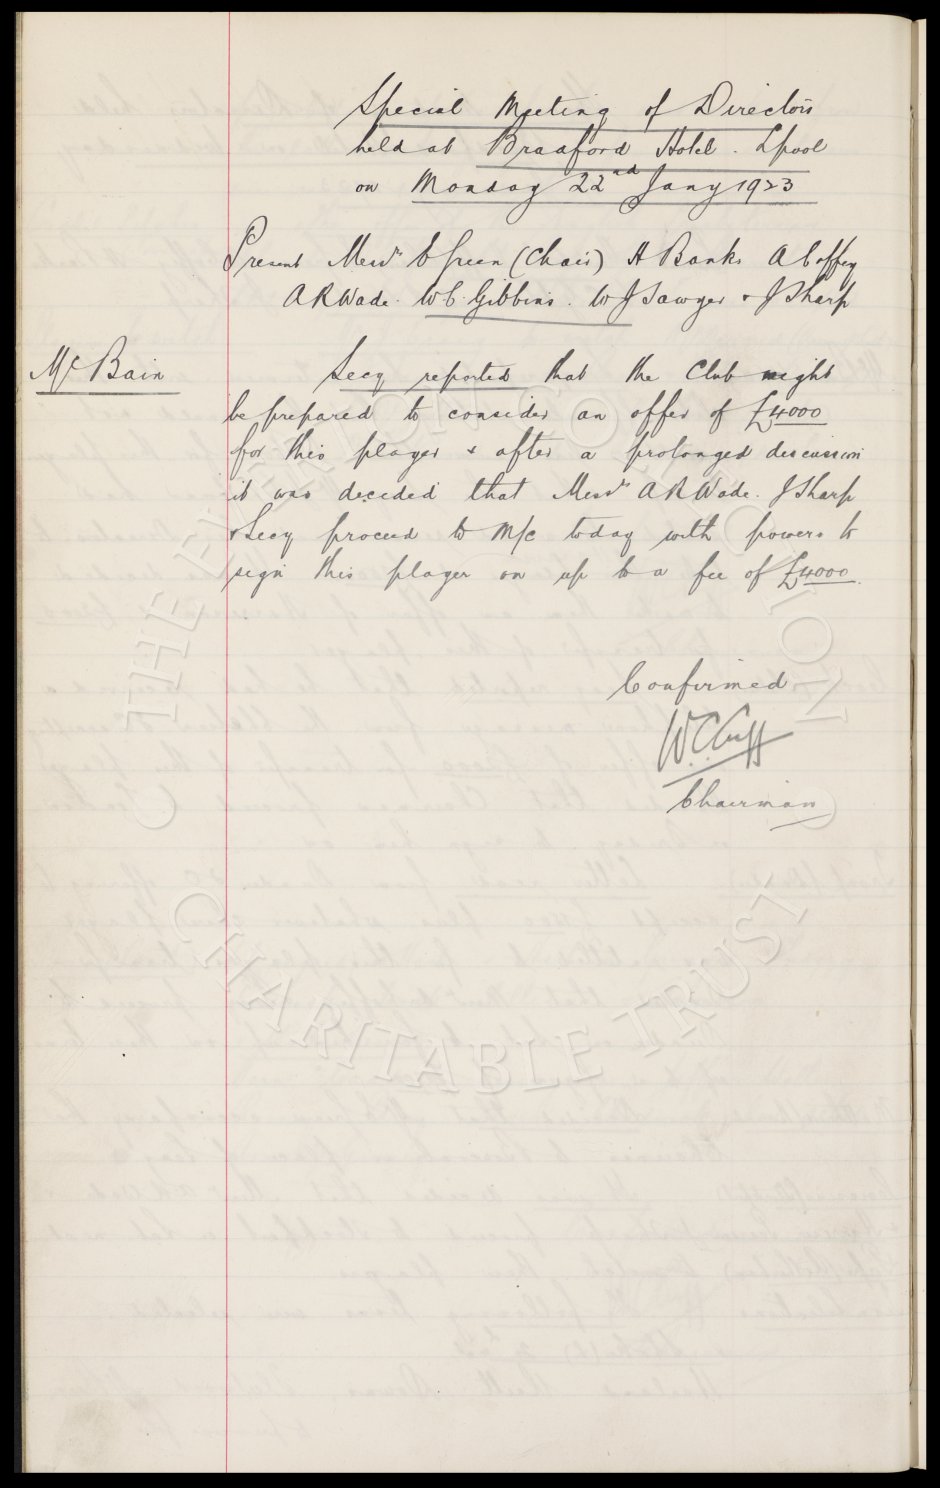 Special Meeting of Directors
held at Bradford Hotel. Lpool
on Monday 22nd Jany 1923
Present Messrs E Green (Chair) H Banks A Coffey
A R Wade. W C. Gibbins. W J Sawyer & J Sharp
Mc Bain
Secy reported that the Club might
be prepared to consider an offer of £4000
for this player & after a prolonged discussion
it was decided that Messrs A R Wade. J Sharp
& Secy proceed to M/c today with powers to
sign this player on up to a fee of £4000.
Confirmed
W.C. Cuff
Chairman
THE EVERTON COLLECTION
CHARITABLE TRUST